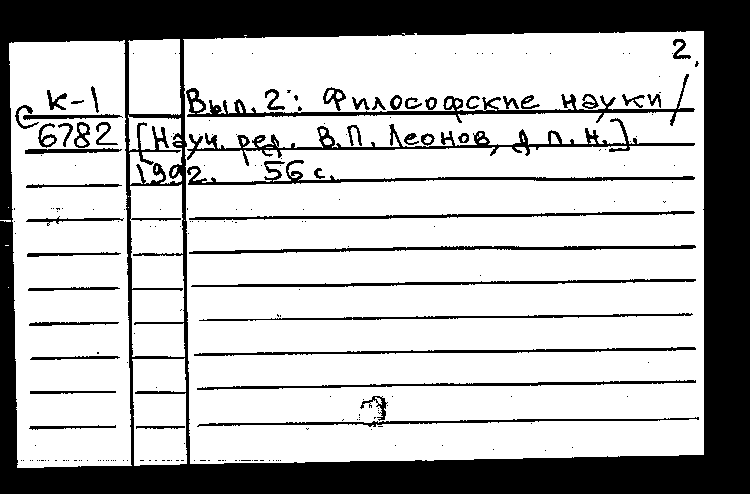 2.
К-1 Вып. 2: Философские науки /
С 6782 [Науч. ред. В.П. Леонов, д.п.н.].
1992. 56 с.